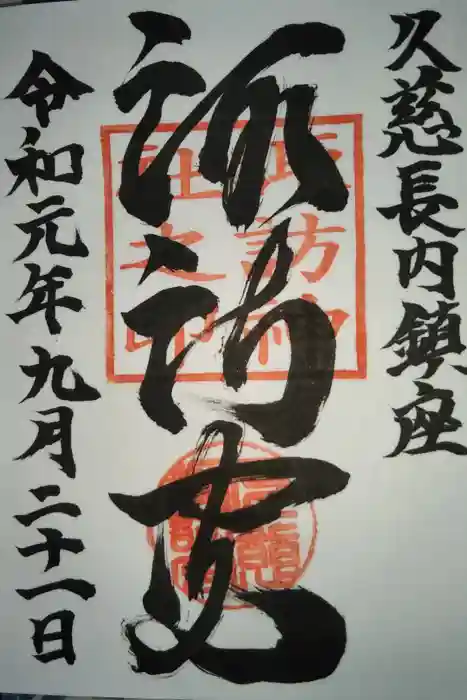 久慈長内鎮座
諏訪
諏訪神
社之印
令和元年九月二十一日